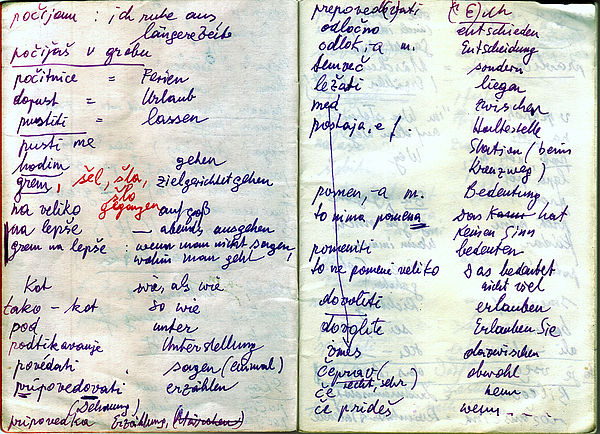 počijam : ich ruhe aus,
längere Zeit
počijaš v grobu
počitnice = Ferien
dopust = Urlaub
pustiti = lassen
pusti me
hodim gehen
grem, šel, šla, zielgerichtet gehen
šlo
gegangen
na veliko auf groß
na lepše — abends ausgehen
grem na lepše : wenn man nicht sagen,
wohin man geht
Kot wie, als wie
tako - kot so wie
pod unter
podtikavanje Unterstellung
povédati sagen (einmal)
pripovedovati erzählen
(Dehnung)
pripovedka Erzählung, (Märchen)
prepoved(ij)ati
odločno entschieden
odlok, -a m. Entscheidung
temveč sondern
ležati liegen
med zwischen
postaja, e f. Haltestelle
Station (beim
Kreuzweg)
pomen, -a m. Bedeutung
to nima pomena Das hat
keinen Sinn
pomeniti bedeuten
to ne pomeni veliko Das bedeutet
nicht viel
dovoliti erlauben
dovolite Erlauben Sie
vmes dazwischen
čeprav (recht, sehr) obwohl
če wenn
če prideš wenn ...